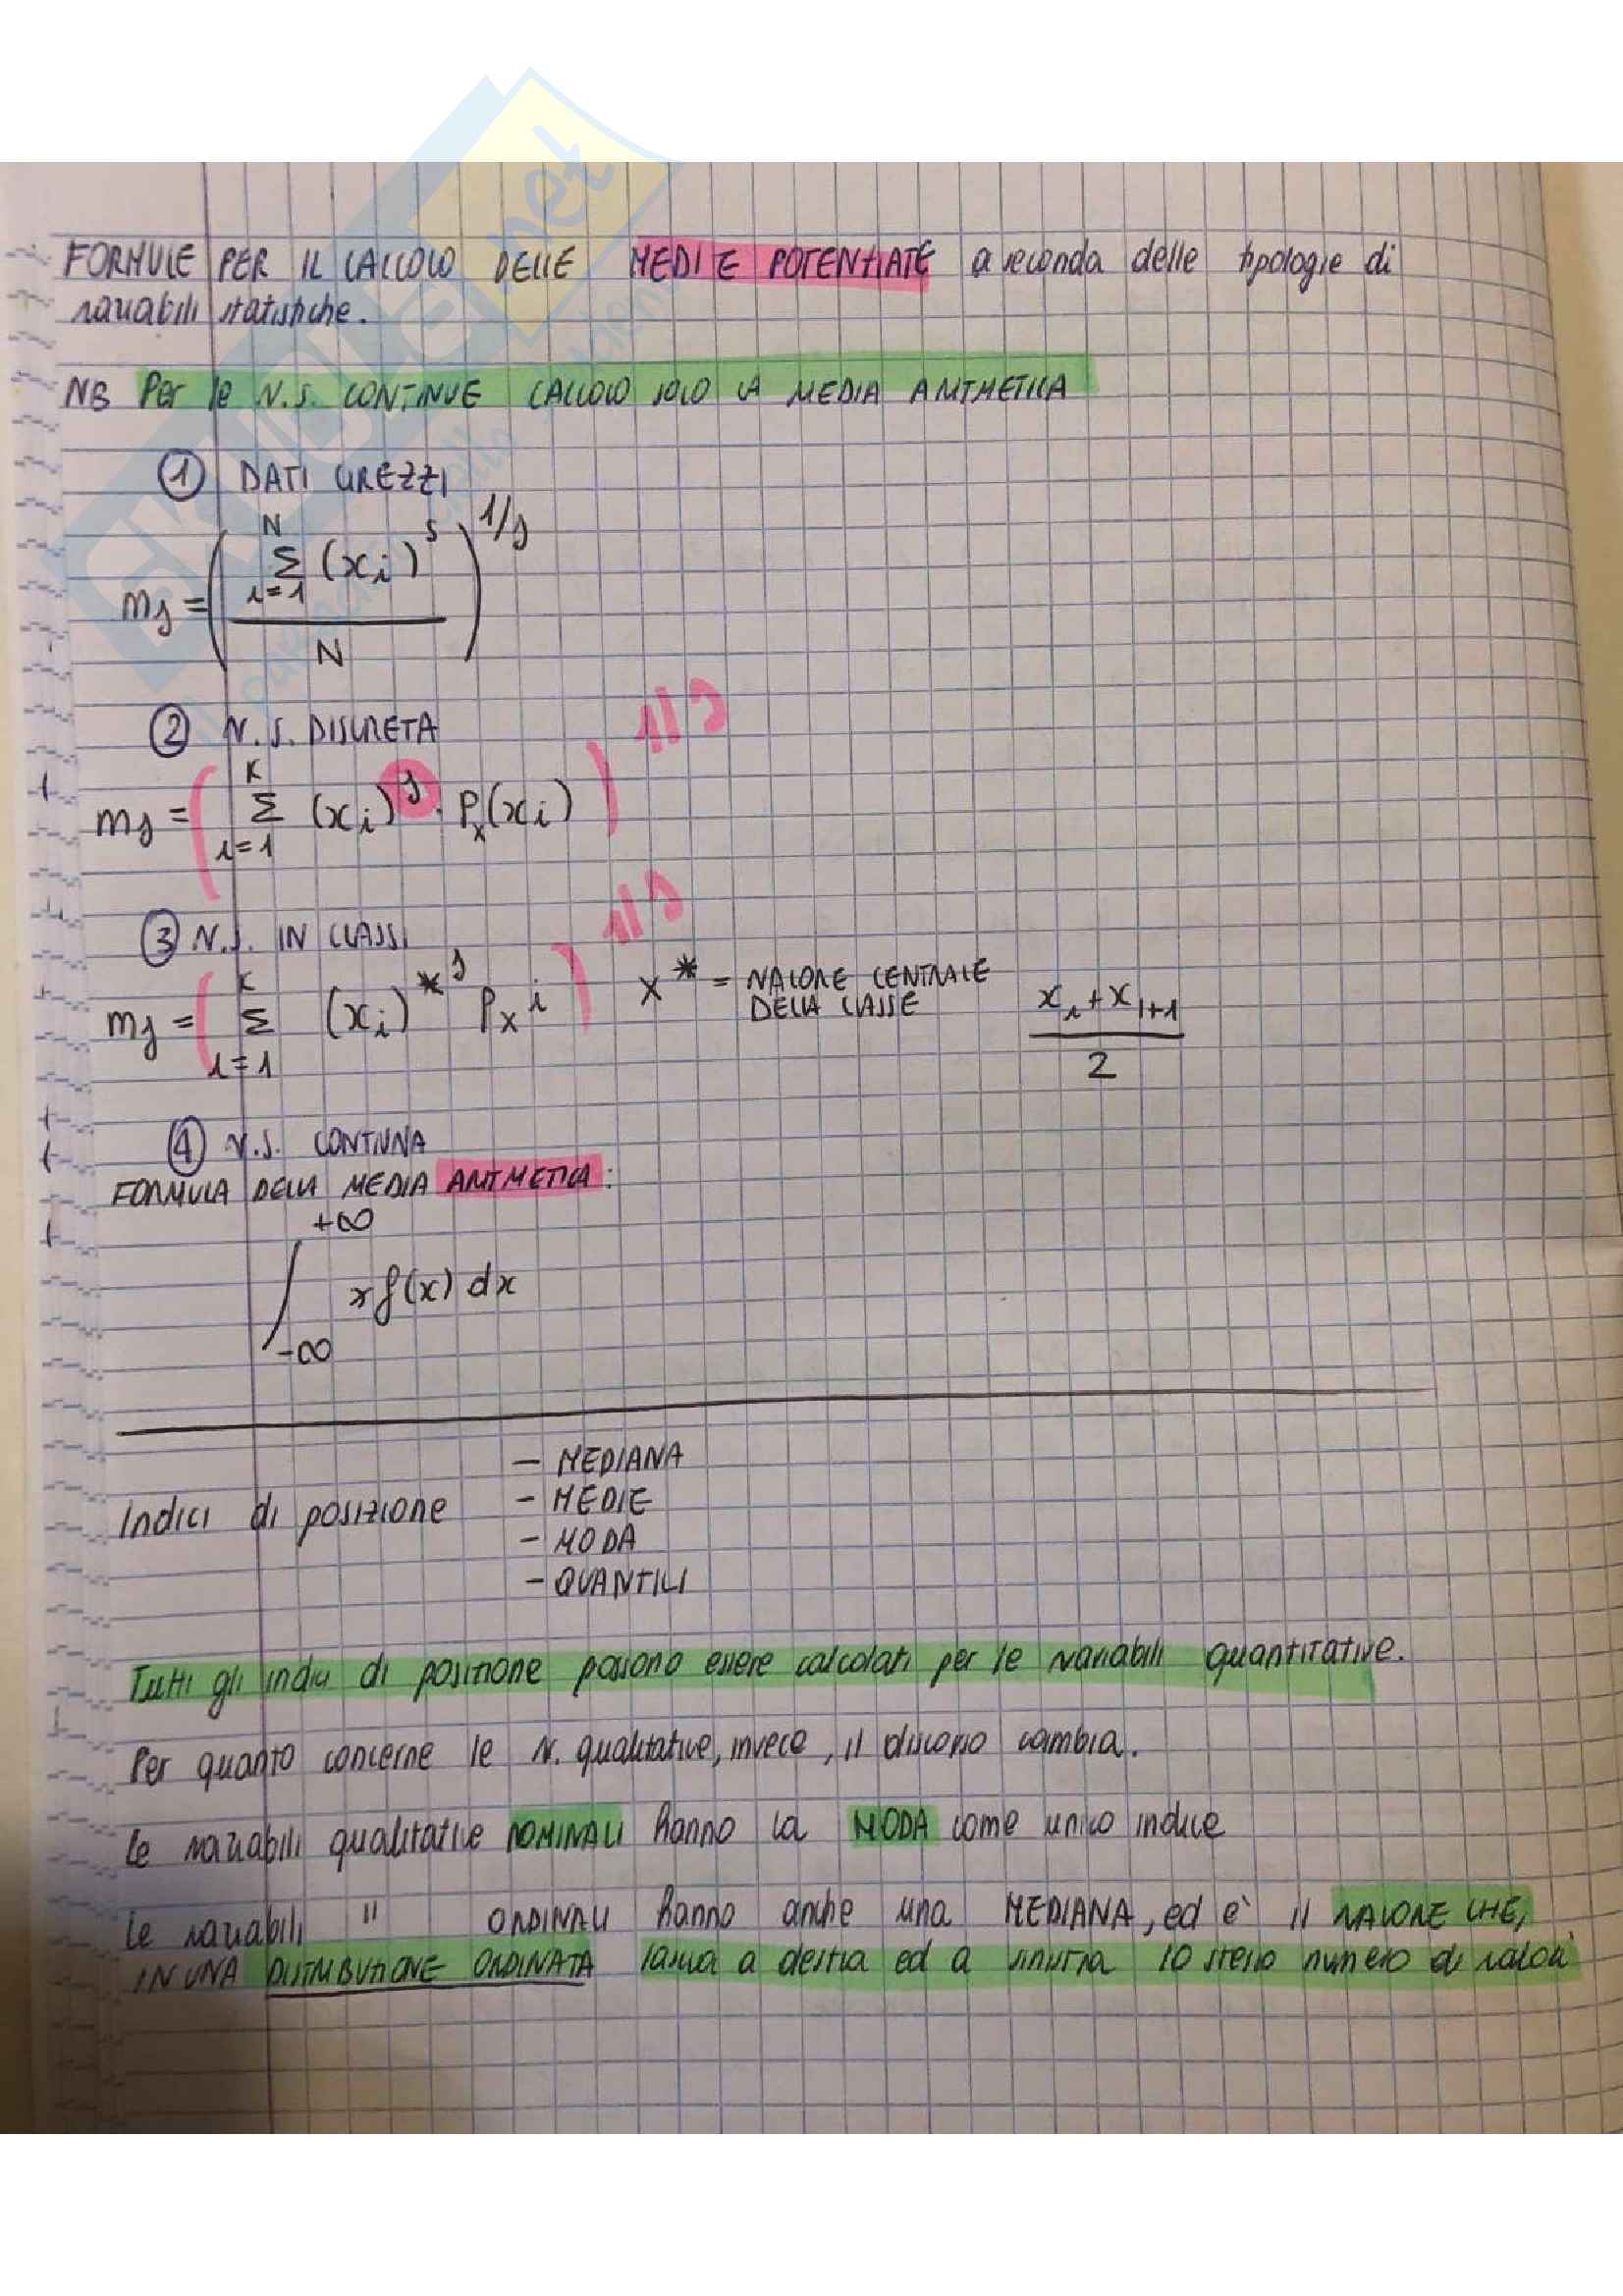 FORMULE PER IL CALCOLO DELLE MEDIE POTENZIATE a seconda delle tipologie di
variabili statistiche.
NB Per le V.S. CONTINUE CALCOLO SOLO LA MEDIA ARITMETICA
① DATI GREZZI
m_s = ( Σ_{i=1}^{N} (x_i)^s / N )^{1/s}
② V.S. DISCRETA
m_s = ( Σ_{i=1}^{K} (x_i)^s · P_x(x_i) )^{1/s}
③ V.S. IN CLASSI
m_s = ( Σ_{i=1}^{K} (x_i)^{*s} P_x i )^{1/s} X* = VALORE CENTRALE DELLA CLASSE (x_i + x_{i+1}) / 2
④ V.S. CONTINUA
FORMULA DELLA MEDIA ARITMETICA:
∫_{-∞}^{+∞} x f(x) dx
Indici di posizione
- MEDIANA
- MEDIE
- MODA
- QUANTILI
Tutti gli indici di posizione possono essere calcolati per le variabili quantitative.
Per quanto concerne le V. qualitative, invece, il discorso cambia.
Le variabili qualitative NOMINALI hanno la MODA come unico indice
Le variabili " ORDINALI hanno anche una MEDIANA, ed è il VALORE CHE,
IN UNA DISTRIBUZIONE ORDINATA lascia a destra ed a sinistra lo stesso numero di valori
SKUOLA.net